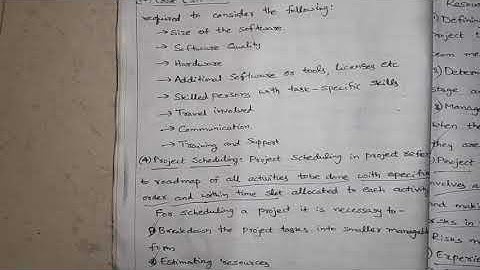 required to consider the following:
→ Size of the software.
→ Software Quality
→ Hardware
→ Additional Software or tools, licenses etc
→ Skilled persons with task-specific skills
→ Travel involved
→ Communication.
→ Training and Support
(4) Project Scheduling: Project Scheduling in project refers
to roadmap of all activities to be done with specific
order and within time slot allocated to each activity
For scheduling a project it is necessary to-
Breakdown the project tasks into smaller manageable
form
Estimating resources
Resour
Defining
Project
team me
Determi
stage a
Manage
when the
they are
Project
involves
and maki
risks in
Risks m
Experie